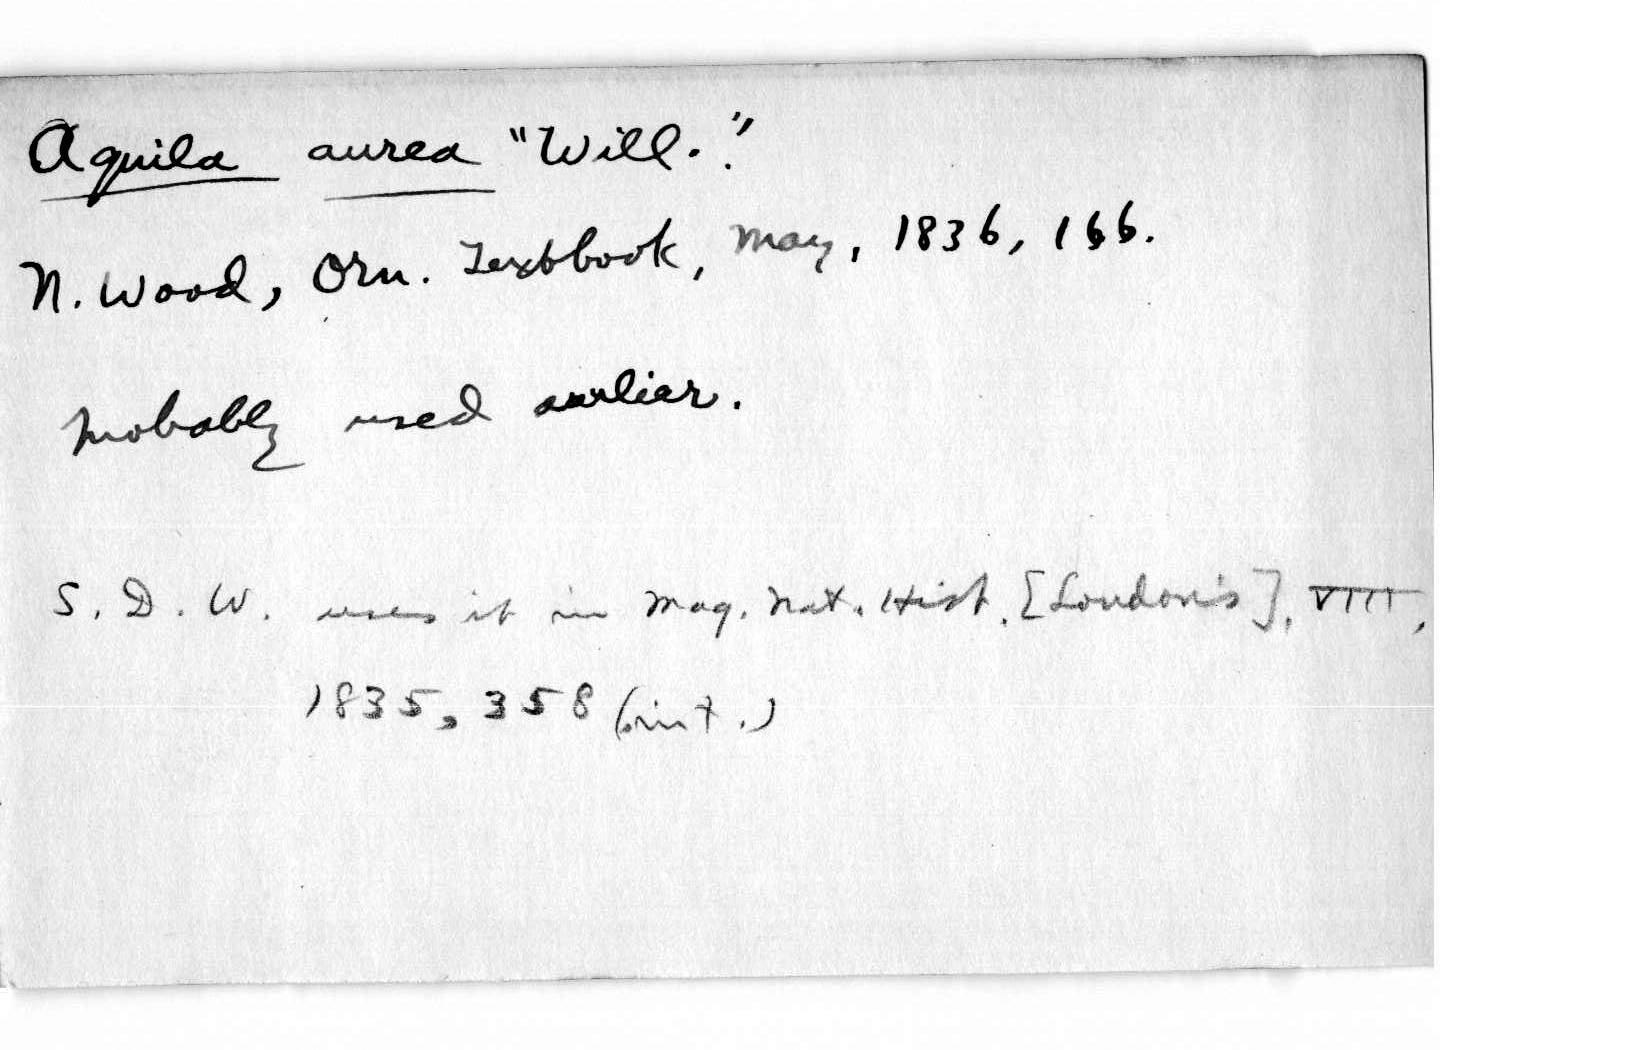 Aquila aurea "Will.".
N. Wood, Orn. Textbook, May, 1836, 166.
Probably used earlier.
S. D. W. uses it in Mag. Nat. Hist. [Loudon's], VIII,
1835, 358 (int.)